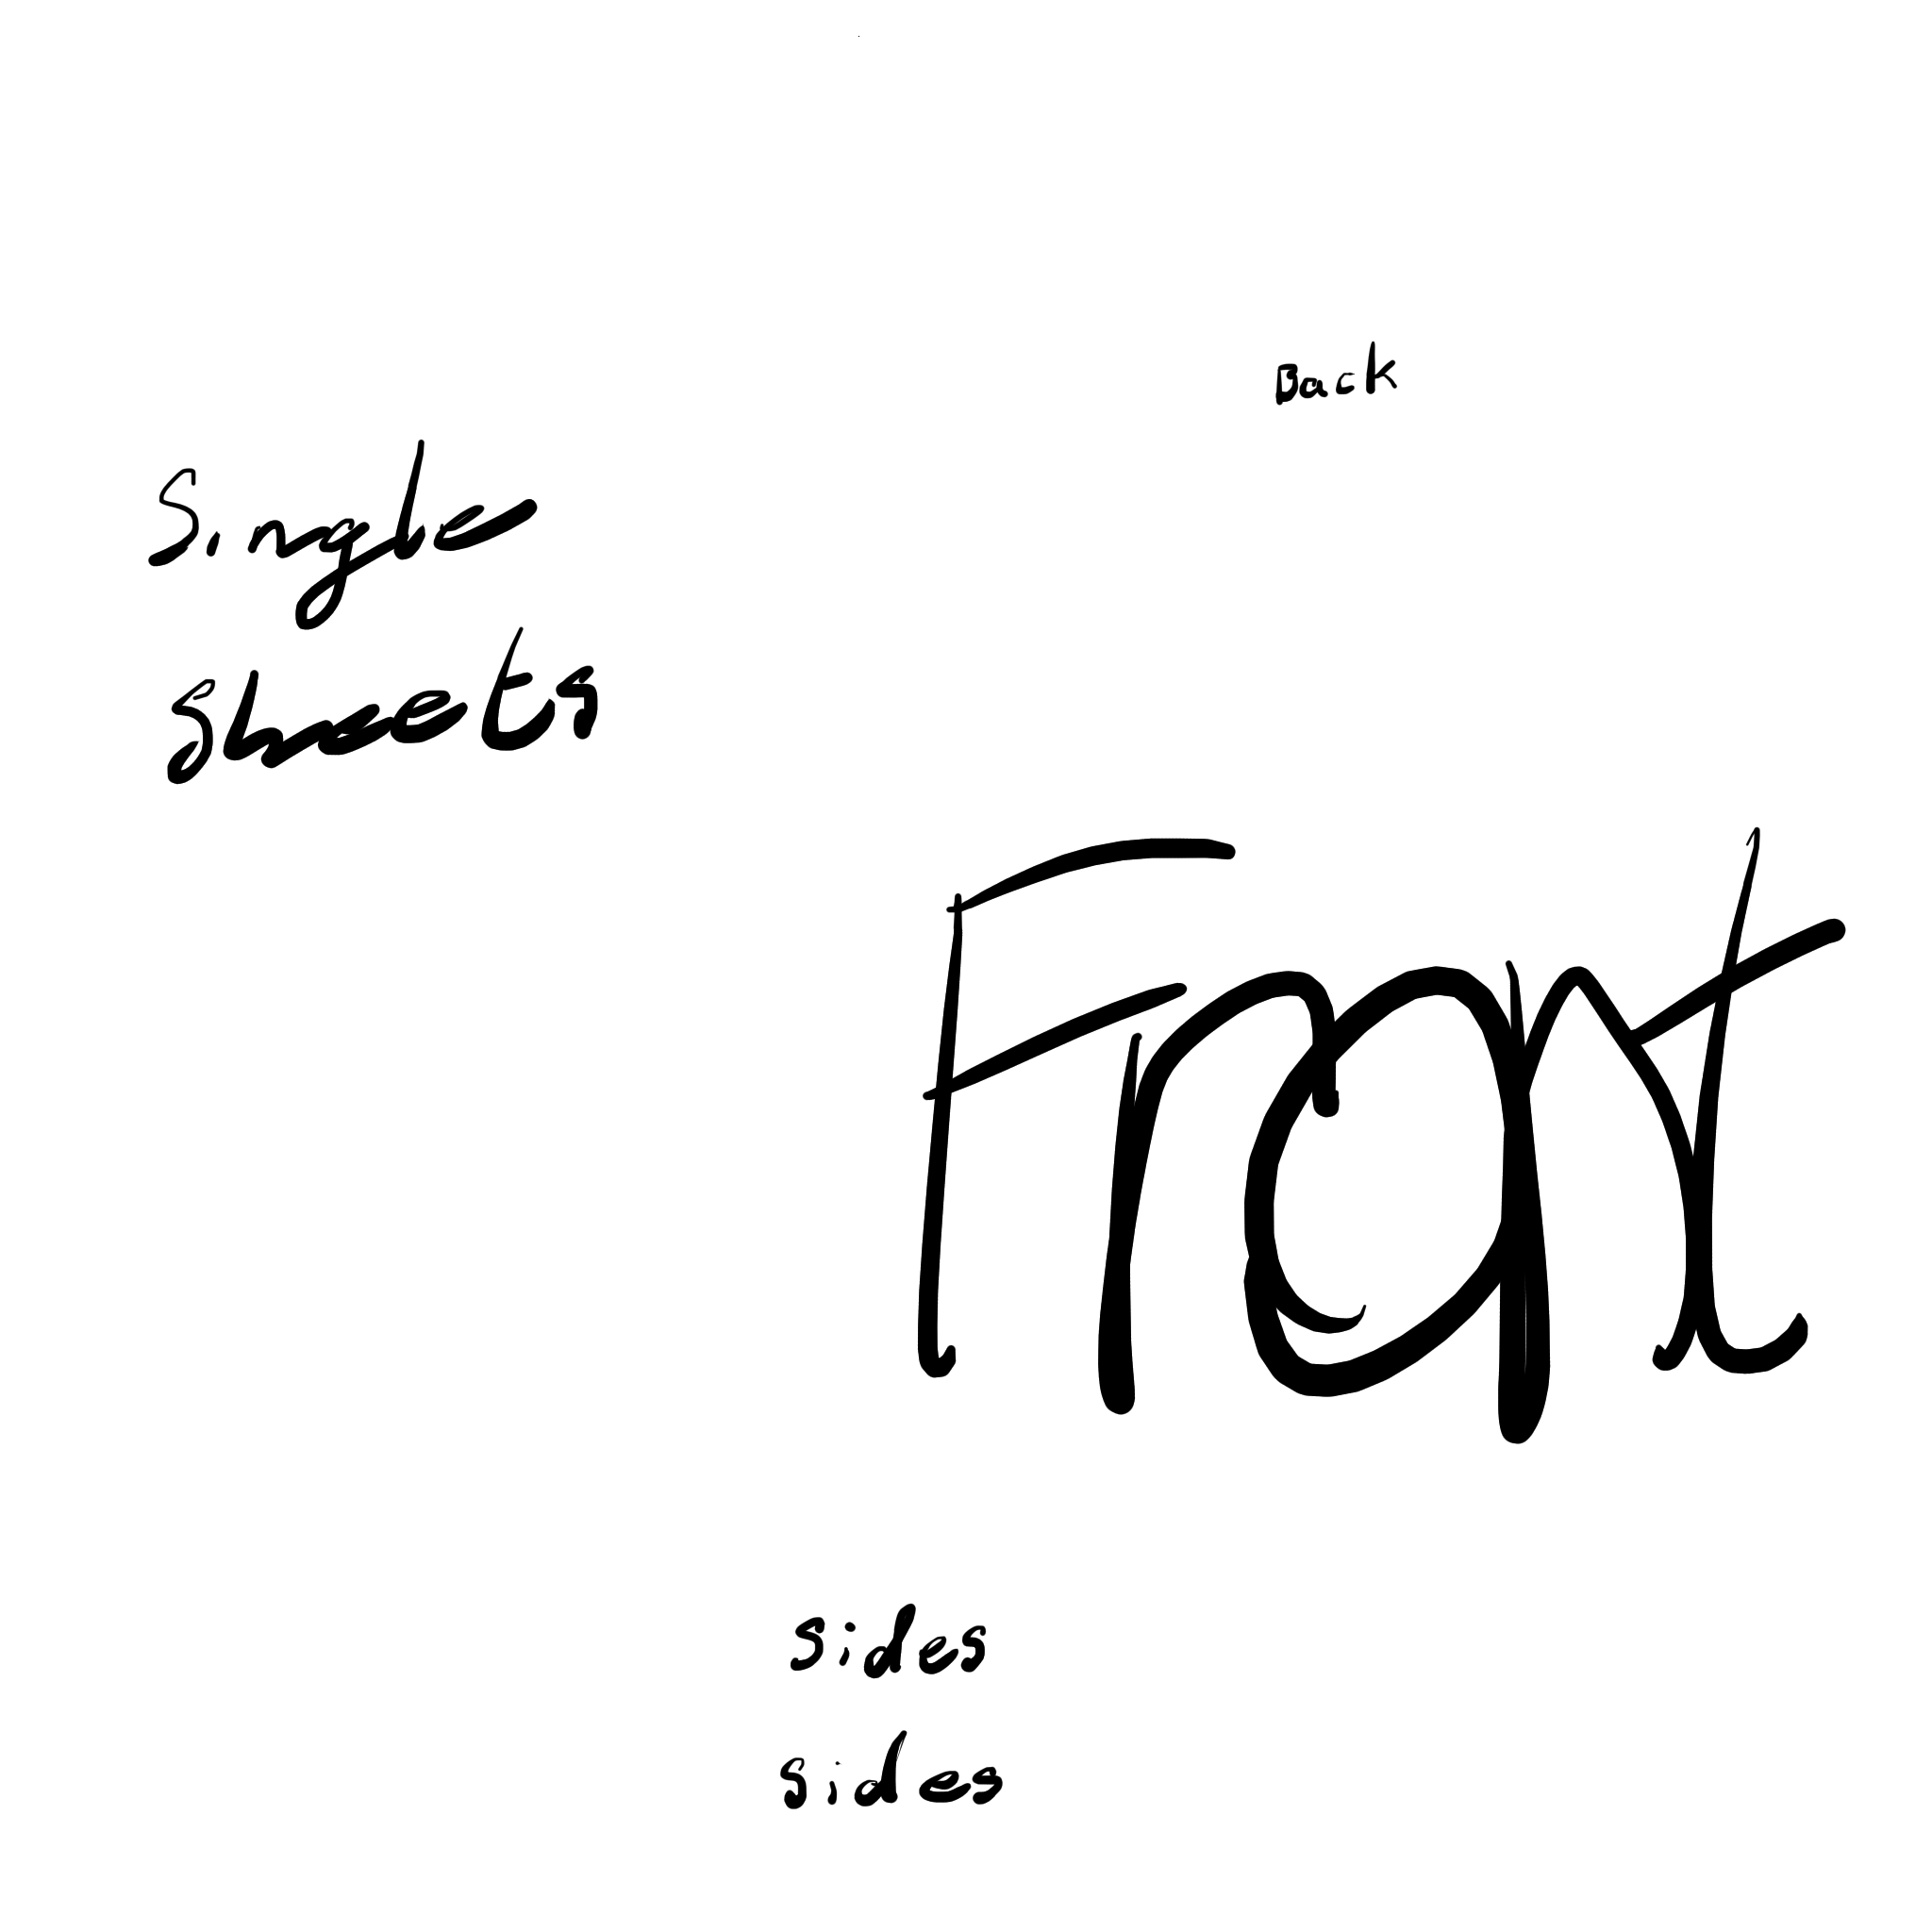 Back
Single
Sheets
Front
Sides
Sides